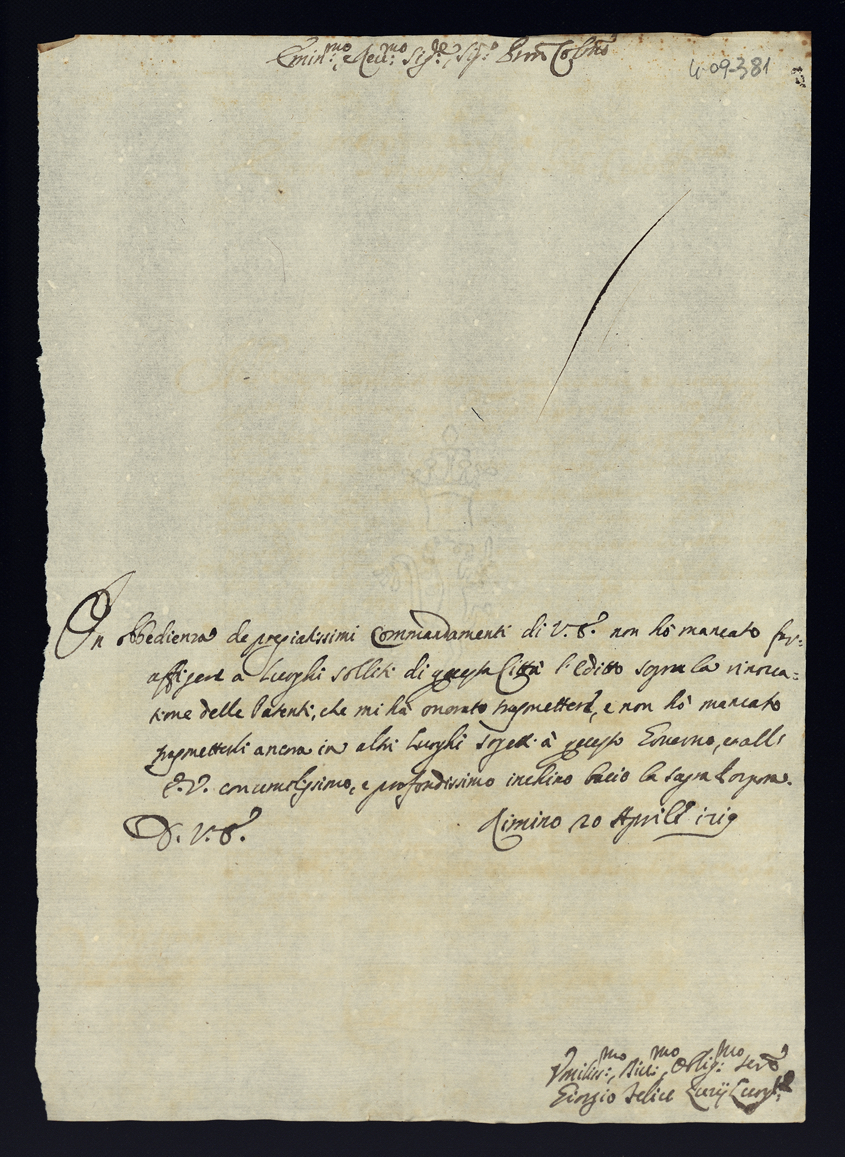 Emin.mo, e Reu.mo Sig.re, Sig.r
4-09-381
In obbedienza de pregiatissimi Commandamenti di V. E. non hò mancato far
affigere a Luoghi solliti di questa Città l'editto sopra la rinoua=
tione delle Patenti, che mi hà onorato trasmettere, e non hò mancato
trasmetterli ancora in altri Luoghi sogetti à questo Governo, et all'
E. V. con umilissimo, e profondissimo inchino bacio la sagra Porpora.
D. V. E.
Rimino 20 Aprile 1719
Vmiliss.mo, Diu.mo, Oblig.mo Ser.e
Giorgio Felice